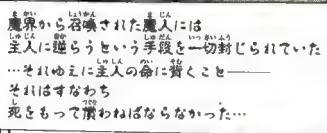 魔界から召喚された魔人には
主人に逆らうという手段を一切封じられていた
…それゆえに主人の命に背くこと――
それはすなわち
死をもって償わねばならなかった…